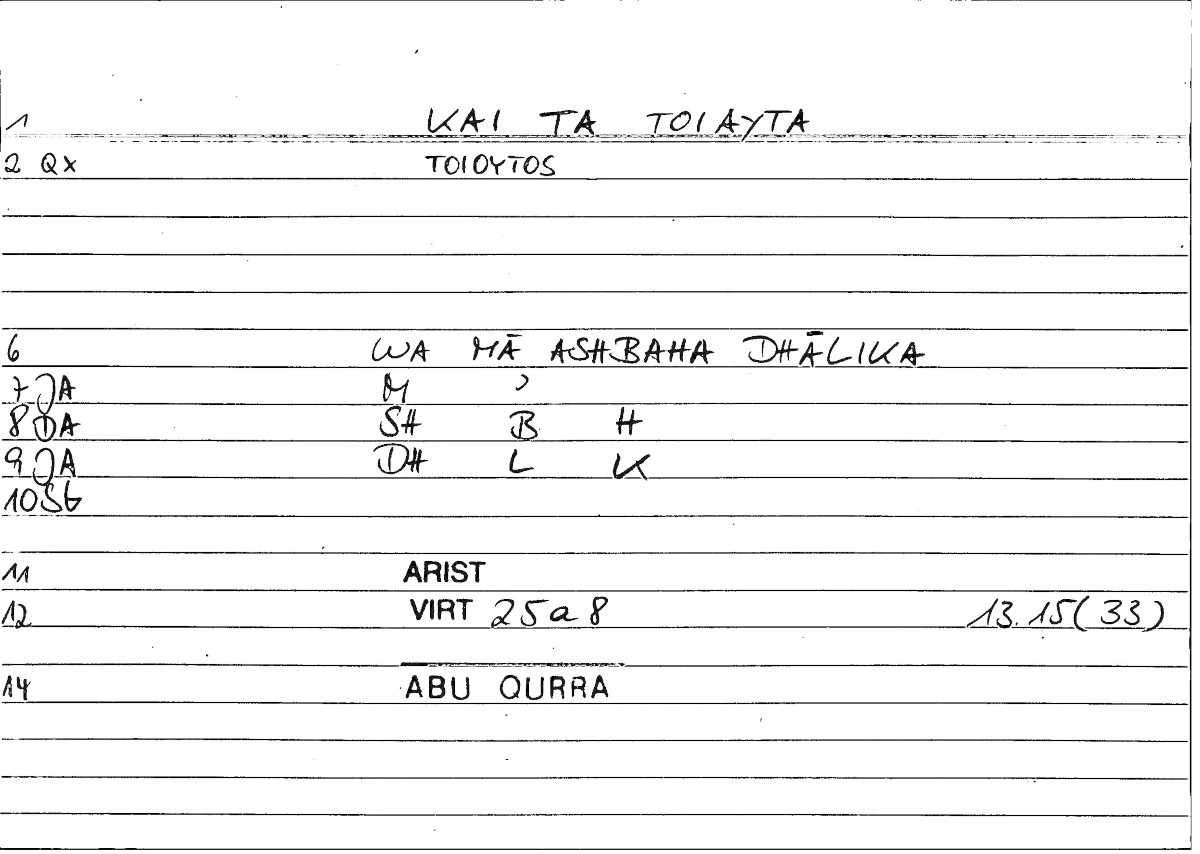 1 KAI TA TOIAYTA
2 QX TOIOYTOS
6 WA MĀ ASHBAHA DHĀLIKA
7 JA M ʾ
8 DA SH B H
9 JA DH L K
10 St
11 ARIST
12 VIRT 25a8 13.15(33)
14 ABU QURRA